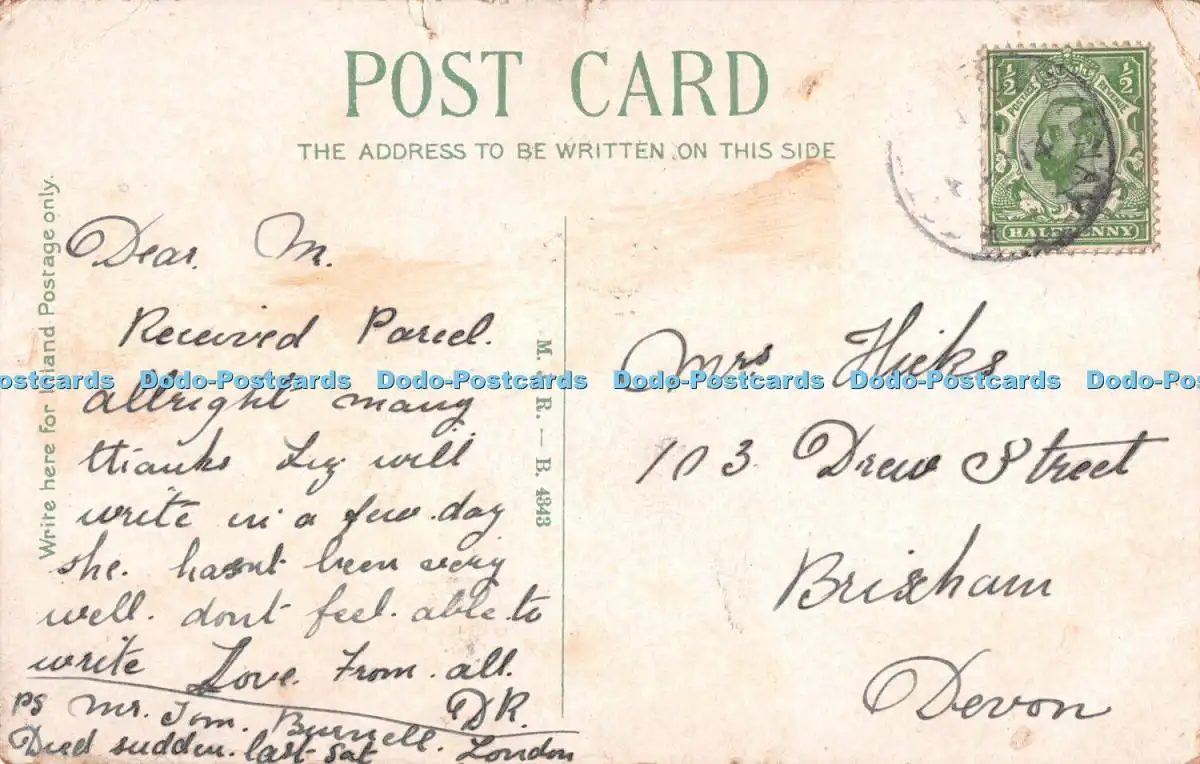 POST CARD
THE ADDRESS TO BE WRITTEN ON THIS SIDE
Write here for Inland Postage only.
½ POSTAGE REVENUE ½
HALFPENNY
Dear. M.
Received Parcel.
allright many
thanks Liz will
write in a few. day
she. hasnt been very
well. dont feel. able to
write Love. From. all.
DR.
PS Mr. Tom. Burnell.
Died sudden. last Sat London
M. R. — B. 4343
Mrs Hicks
103 Drew Street
Brixham
Devon
Dodo-Postcards Dodo-Postcards Dodo-Postcards Dodo-Postcards Dodo-Postcards